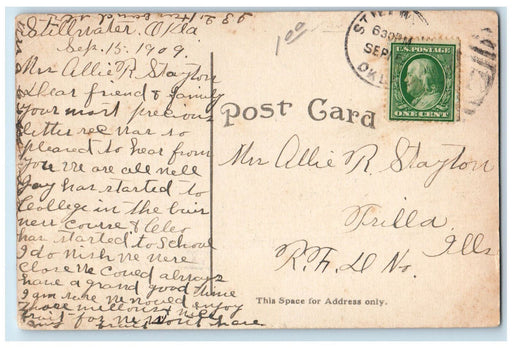 Stillwater, Okla
Sep. 15. 1909.
Mrs Allie R. Stayton
Dear friend & family
your most precious
letter rec was so
pleased to hear from
you We are all well
Jay has started to
College in the busi
ness course & Cleo
has started to School
I do wish we were
close we could always
have a grand good time
I am sure we would enjoy
those mellons &
fruit for we won't have
1 00
STILLW
630PM
SEP
OKLA
U.S. POSTAGE
ONE CENT
Post Card
Mrs Allie R Stayton
Trilla,
Ills
R.F.D No.
This Space for Address only.